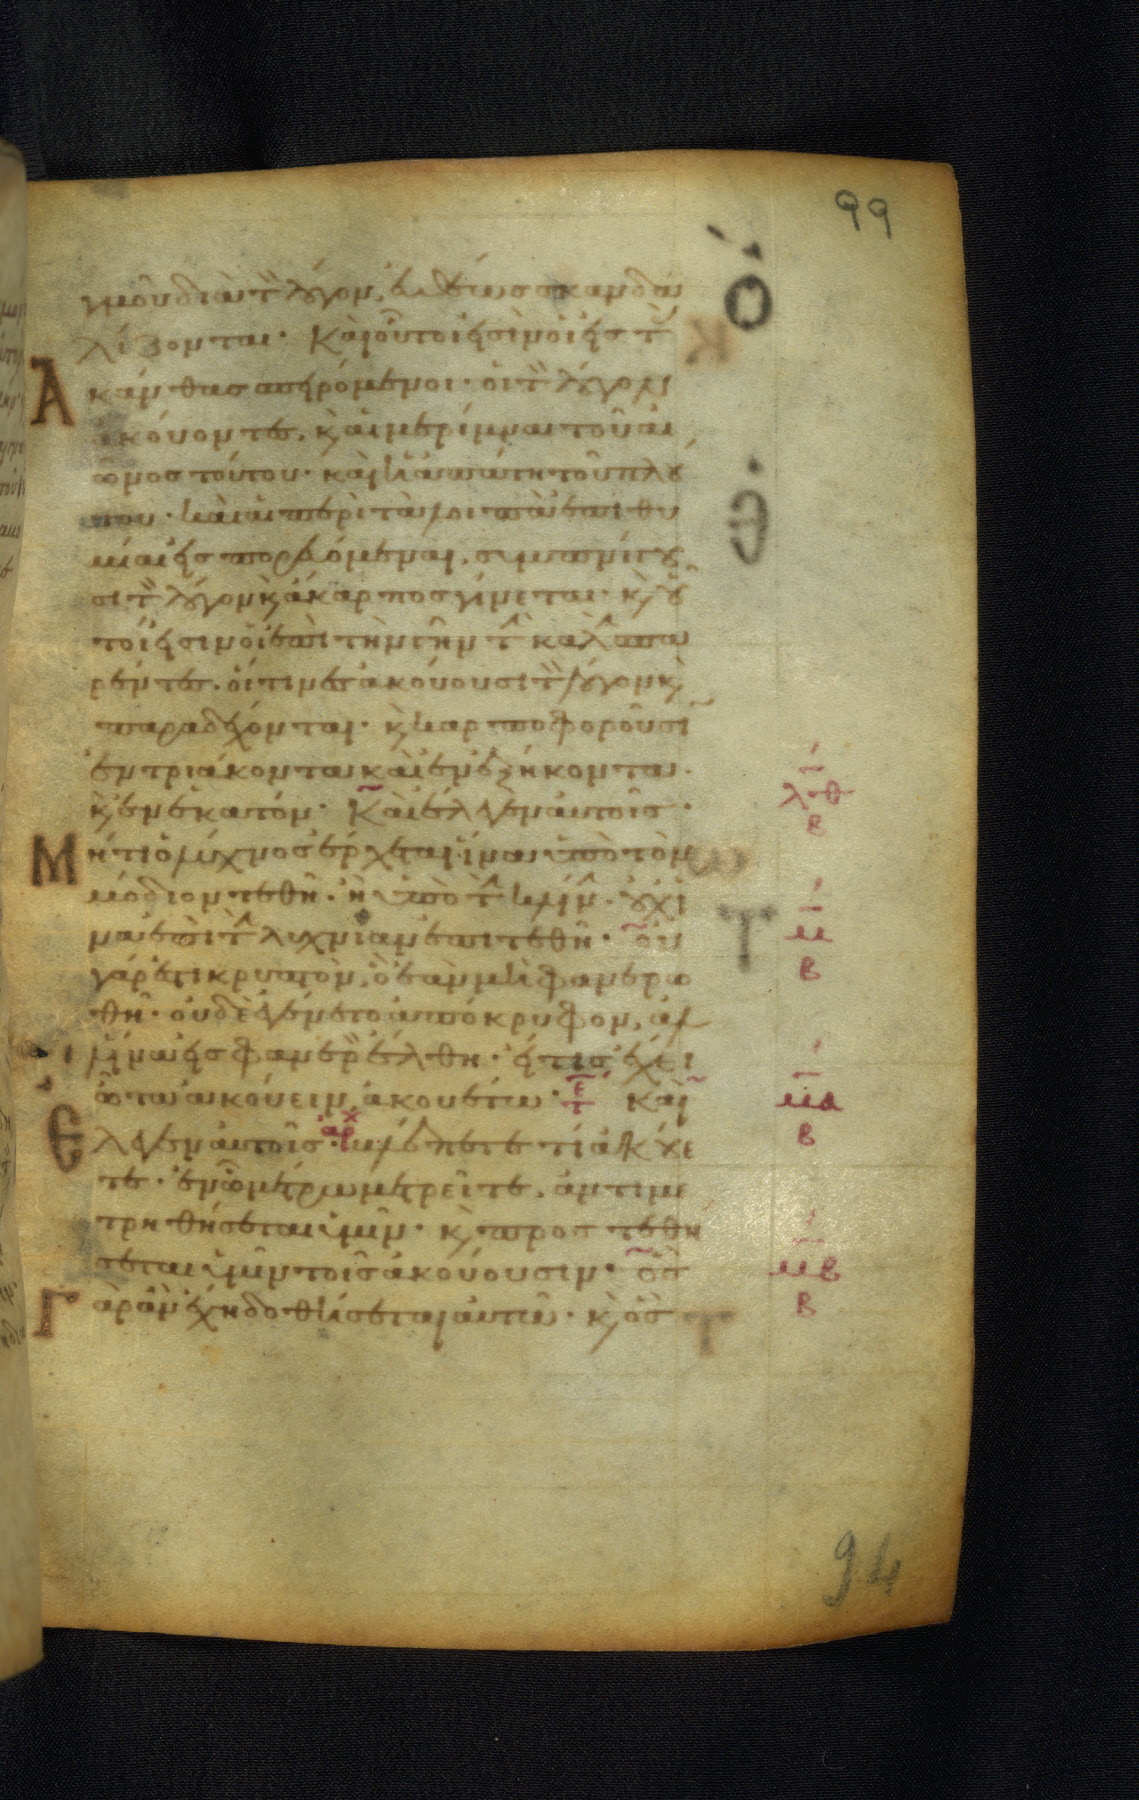 99
γμοῦ διὰ τὸν λόγον, εὐθέως σκανδα
λίζονται· Καὶ οὗτοί εἰσιν οἱ εἰς τὰς
Ακάνθας σπειρόμενοι· οἱ τὸν λόγον
ἀκούοντες, κ αἱ μέριμναι τοῦ αἰ
ῶνος τούτου· καὶ ἡ ἀπάτη τοῦ πλού
του· καὶ αἱ περὶ τὰ λοιπὰ ἐπιθυ
μίαι εἰσπορευόμεναι, συμπνίγου
σι τὸν λόγον κ ἄκαρπος γίνεται· κ οὗ
τοί εἰσιν οἱ ἐπὶ τὴν γῆν τὴν καλὴν σπα
ρέντες· οἵτινες ἀκούουσι τὸν λόγον κ
παραδέχονται· κ καρποφοροῦσιν
ἐν τριάκοντα καὶ ἐν ἑξήκοντα·
κ ἐν ἑκατόν· Καὶ ἔλεγεν αὐτοῖς·
λθ
β
Μήτι ὁ λύχνος ἔρχεται ἵνα ὑπὸ τὸν
μόδιον τεθῇ· ἢ ὑπὸ τὴν κλίνην· οὐχ ἵ
να ἐπὶ τὴν λυχνίαν ἐπιτεθῇ· οὐ
μ
β
γάρ ἐστι κρυπτὸν, ὃ ἐὰν μὴ φανερω
θῇ· οὐδὲ ἐγένετο ἀπόκρυφον, ἀλ
λ ἵνα εἰς φανερὸν ἔλθῃ· εἴ τις ἔχει
ὦτα ἀκούειν ἀκουέτω· τε Καὶ
μα
β
Ελεγεν αὐτοῖς· αρχ βλέπετε τί ἀκούε
τε· ἐν ᾧ μέτρῳ μετρεῖτε, ἀντιμε
τρηθήσεται ὑμῖν· κ προστεθή
σεται ὑμῖν τοῖς ἀκούουσιν· ὃς
μβ
β
Γὰρ ἂν ἔχῃ δοθήσεται αὐτῷ· κ ὃς
94